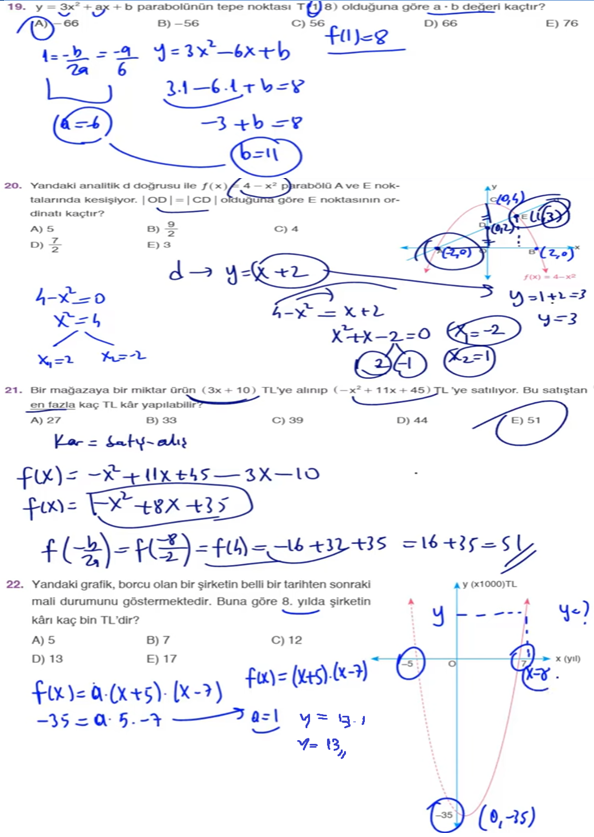 19. y = 3x² + ax + b parabolünün tepe noktası T(1, 8) olduğuna göre a · b değeri kaçtır?
A) −66 B) −56 C) 56 D) 66 E) 76
f(1)=8
1 = -b/2a = -a/6
y=3x²-6x+b
3.1-6.1+b=8
a=-6
-3+b=8
b=11
20. Yandaki analitik d doğrusu ile f(x) = 4 − x² parabolü A ve E nok-
talarında kesişiyor. |OD| = |CD| olduğuna göre E noktasının or-
dinatı kaçtır?
A) 5 B) 9/2 C) 4
D) 7/2 E) 3
y
C (0,4)
E (1,3)
D (0,2)
(-2,0) B (2,0) x
f(x) = 4−x²
d → y=x+2
4-x²=0
x²=4
x₁=2 x₂=-2
4-x²=x+2
x²+x-2=0
2 -1
x₁=-2
x₂=1
y=1+2=3
y=3
21. Bir mağazaya bir miktar ürün (3x + 10) TL'ye alınıp (−x² + 11x + 45) TL 'ye satılıyor. Bu satıştan
en fazla kaç TL kâr yapılabilir?
A) 27 B) 33 C) 39 D) 44 E) 51
Kar = satış-alış
f(x) = -x²+11x+45-3x-10
f(x) = -x²+8x+35
f(-b/2a) = f(-8/-2) = f(4) = -16+32+35 = 16+35 = 51
22. Yandaki grafik, borcu olan bir şirketin belli bir tarihten sonraki
mali durumunu göstermektedir. Buna göre 8. yılda şirketin
kârı kaç bin TL'dir?
A) 5 B) 7 C) 12
D) 13 E) 17
y (x1000)TL
y
y=?
-5 O 7 x (yıl)
x=8
-35 (0,-35)
f(x)=a.(x+5).(x-7)
-35=a.5.-7
a=1
f(x)=(x+5).(x-7)
y = 13.1
y=13